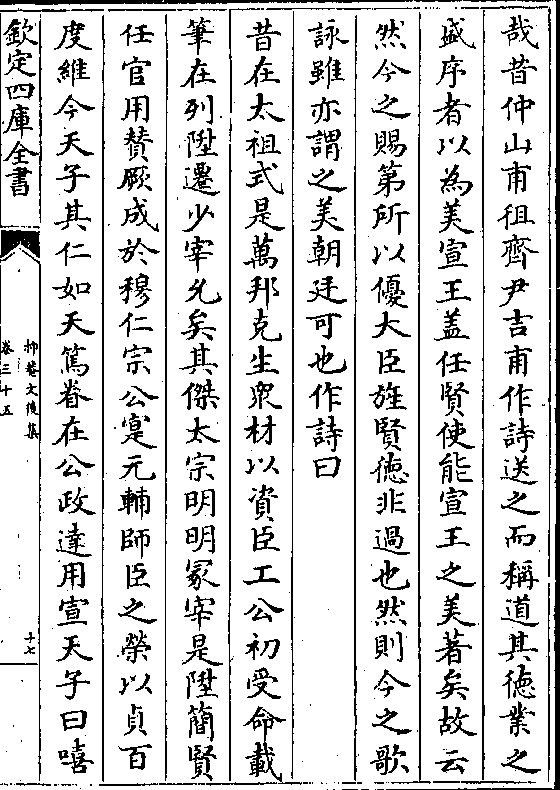 哉昔仲山甫徂齊尹吉甫作詩送之而稱道其徳業之
盛序者以為美宣王蓋任賢使能宣王之美著矣故云
然今之賜第所以優大臣旌賢徳非過也然則今之歌
詠雖亦謂之美朝廷可也作詩曰
昔在太祖式是萬邦克生衆材以資臣工公初受命載
筆在列陞遷少宰允矣其傑太宗明明冢宰是陞簡賢
任官用賛厥成於穆仁宗公寔元輔師臣之榮以貞百
度維今天子其仁如天篤眷在公政達用宣天子曰嘻
欽定四庫全書
抑菴文後集
卷三十五
十七